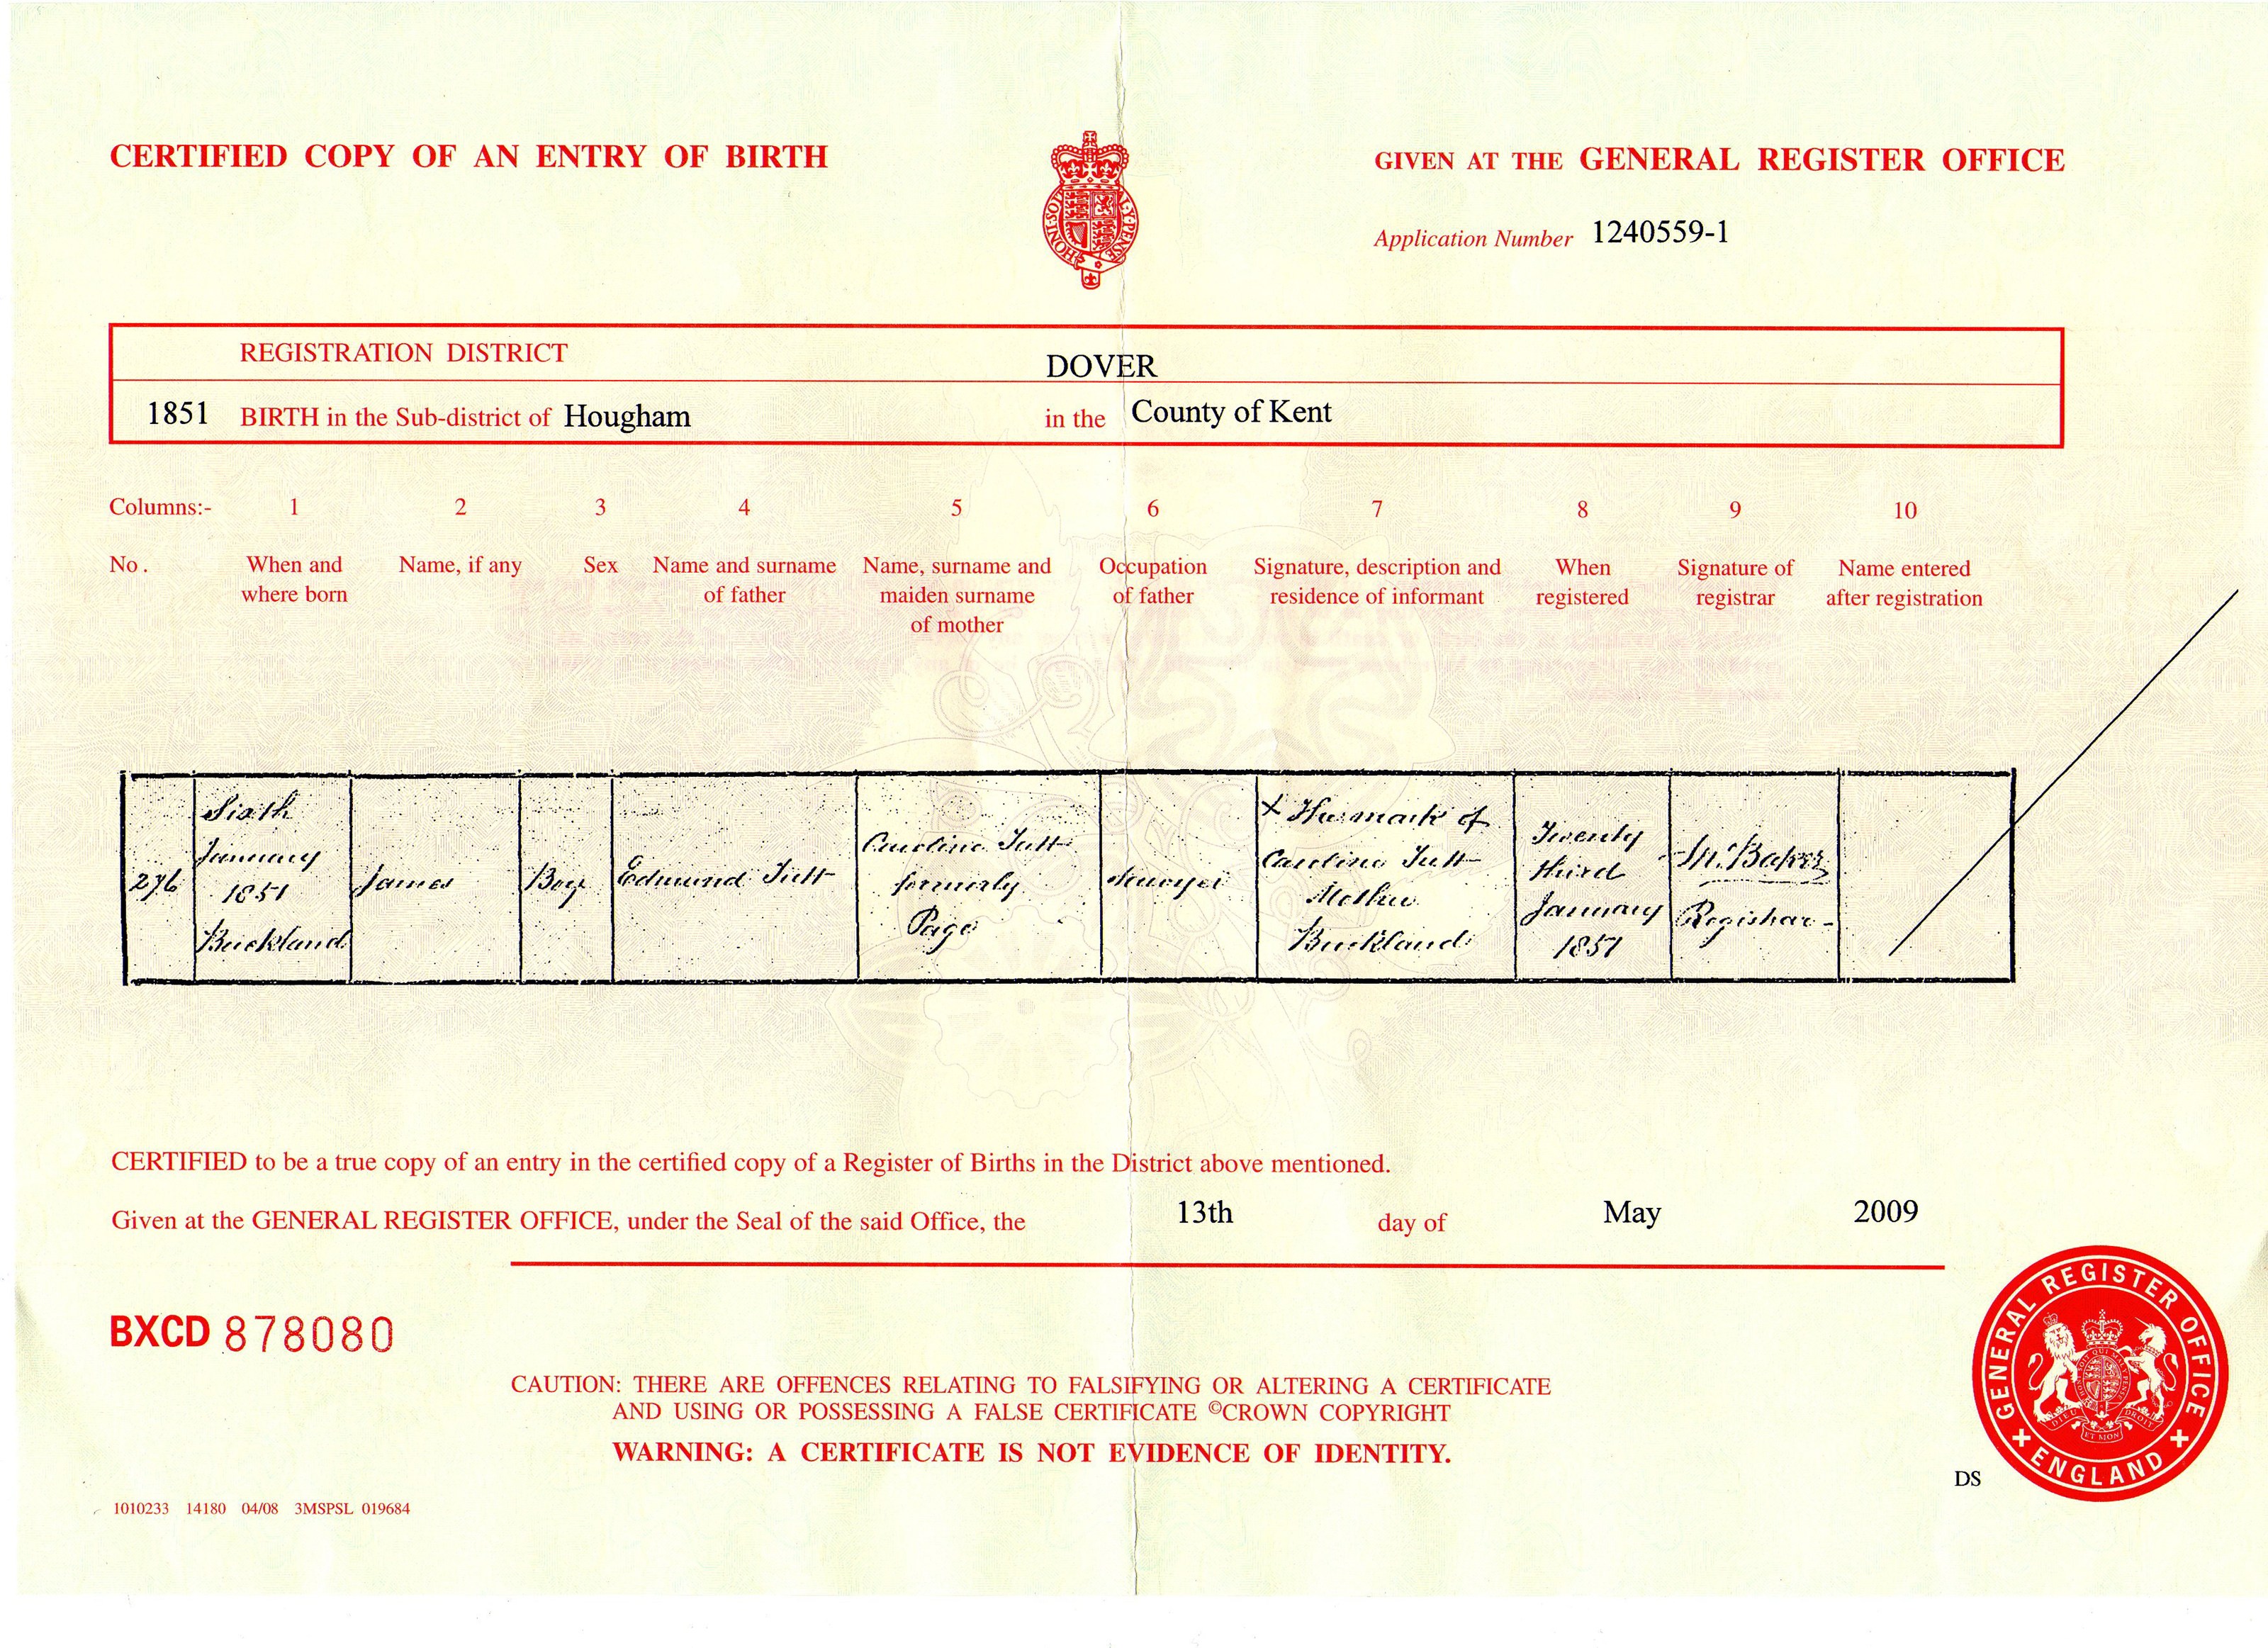 CERTIFIED COPY OF AN ENTRY OF BIRTH
GIVEN AT THE GENERAL REGISTER OFFICE
HONI·SOI
AL·Y·PENSE
Application Number 1240559-1
REGISTRATION DISTRICT DOVER
1851 BIRTH in the Sub-district of Hougham in the County of Kent
Columns:- 1 2 3 4 5 6 7 8 9 10
No. When and Name, if any Sex Name and surname Name, surname and Occupation Signature, description and When Signature of Name entered
where born of father maiden surname of father residence of informant registered registrar after registration
of mother
276
Sixth
January
1851
Buckland
James
Boy
Edmund Tutt
Caroline Tutt
formerly
Page
Sawyer
X The mark of
Caroline Tutt
Mother
Buckland
Twenty
third
January
1851
Baker
Registrar
CERTIFIED to be a true copy of an entry in the certified copy of a Register of Births in the District above mentioned.
Given at the GENERAL REGISTER OFFICE, under the Seal of the said Office, the 13th day of May 2009
BXCD 878080
CAUTION: THERE ARE OFFENCES RELATING TO FALSIFYING OR ALTERING A CERTIFICATE
AND USING OR POSSESSING A FALSE CERTIFICATE ©CROWN COPYRIGHT
WARNING: A CERTIFICATE IS NOT EVIDENCE OF IDENTITY.
GENERAL REGISTER OFFICE
ENGLAND
DIEU ET MON DROIT
DS
1010233 14180 04/08 3MSPSL 019684